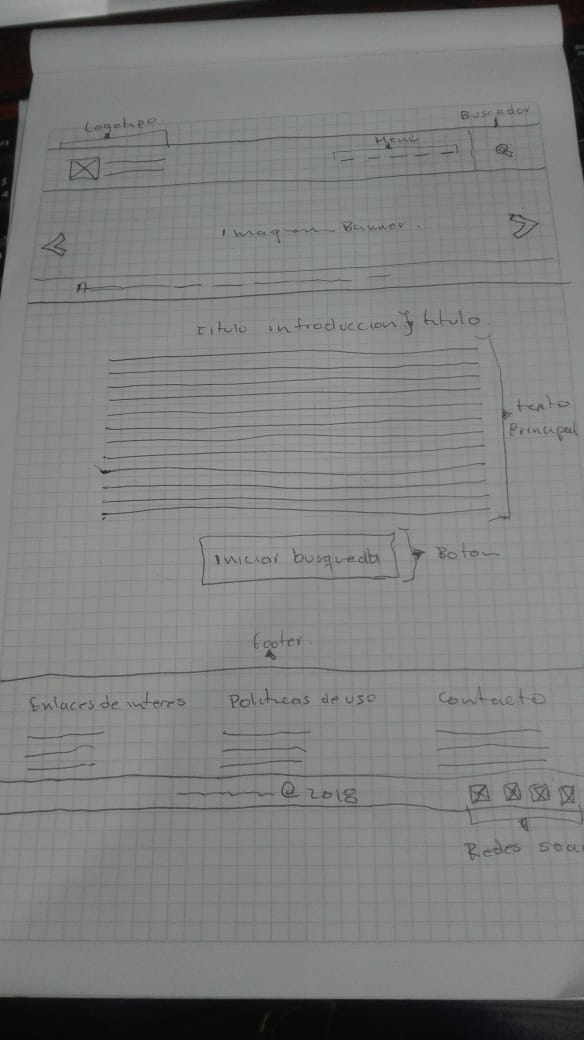 Logotipo
Buscador
Menú
Imagen Banner.
Titulo introduccion } titulo
texto
Principal
Iniciar busqueda
Boton
footer
Enlaces de interes
Politicas de uso
Contacto
@ 2018
Redes soci